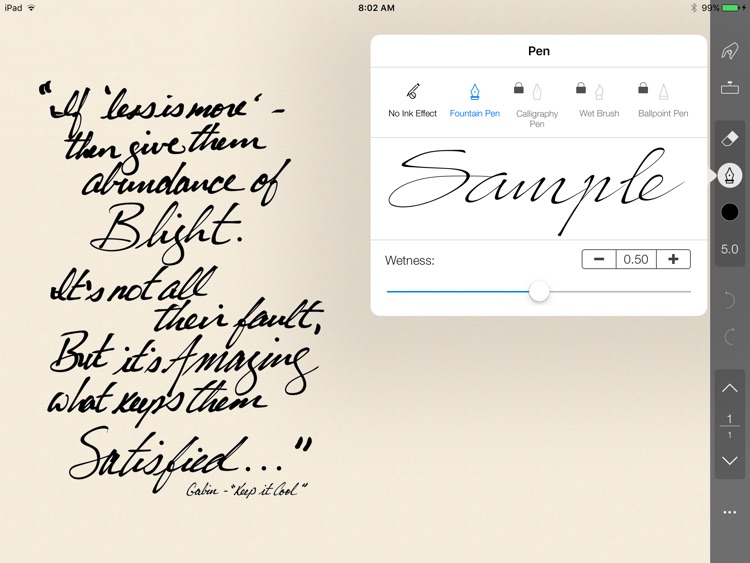 iPad
8:02 AM
99%
Pen
No Ink Effect
Fountain Pen
Calligraphy
Pen
Wet Brush
Ballpoint Pen
Sample
Wetness:
0.50
5.0
1
1
"If 'less is more' -
then give them
abundance of
Blight.
It's not all
their fault,
But it's Amazing
what keeps them
Satisfied..."
Gabin - "Keep it Cool"